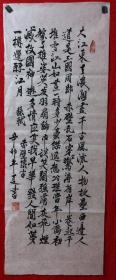 大江東去浪淘盡千古風流人物故壘西邊人
道是三國周郎赤壁亂石穿空驚濤拍岸捲起千
堆雪江山如畫一時多少豪傑遙想公瑾當年小喬初
嫁了雄姿英發羽扇綸巾談笑間檣櫓灰飛煙
滅故國神遊多情應笑我早生華髮人間如夢
一樽還酹江月
赤壁懷古